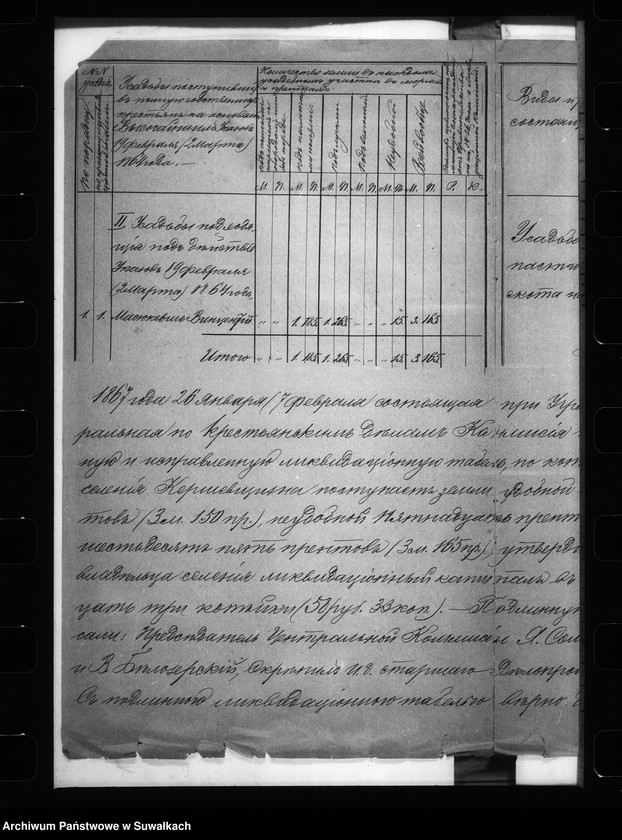 №№ усадьб.
По порядку
Усадьбы поступившія
въ полную собственность
крестьянъ на основаніи
Высочайшихъ Указовъ
19 февраля (2 Марта)
1864 года. —
Количество земли въ каждомъ
усадебномъ участкѣ въ моргахъ
и прентахъ.
Неудобной
М. П. М. П. М. П. М. П. М. П. М. П. Р. К.
Виды
состоящ
II Усадьбы подходя
щія подъ дѣйствіе
Указовъ 19 февраля
(2 Марта) 1864 года.
Усадьбы
скота
1. 1. Масюкевичъ Винцентій „ „ 1. 185 1. 265 „ „ „ 15 3. 165
Итого „ „ 1. 185 1. 265 „ „ „ 15 3. 165
1867 года 26 Января / 7 февраля состоящая при Учре
ральная по крестьянскимъ дѣламъ Коммисія
ную и исправленную ликвидаціонную табель, по кот
селенія поступаетъ земли удобной
товъ (3 м. 150 пр.), неудобной пятнадцать прент
шестьдесятъ пять прентовъ (3 м. 165 пр.) утверд
владѣльца селенія ликвидаціонный капиталъ въ
цать три копѣйки (50 руб. 33 коп.). — Подлинную
сали: Предсѣдатель Центральной Коммисіи Я. Сол
и В. Бѣлозерскій, Скрѣпилъ И. д. старшаго Дѣлопро
Съ подлинною ликвидаціонною табелью вѣрно.
Archiwum Państwowe w Suwałkach